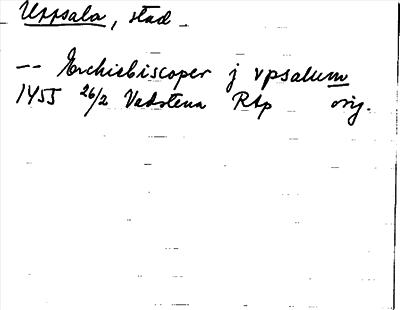 Uppsala, stad
-- Erchiebiscoper j vpsalum
1455 26/2 Vadstena RAp orig.